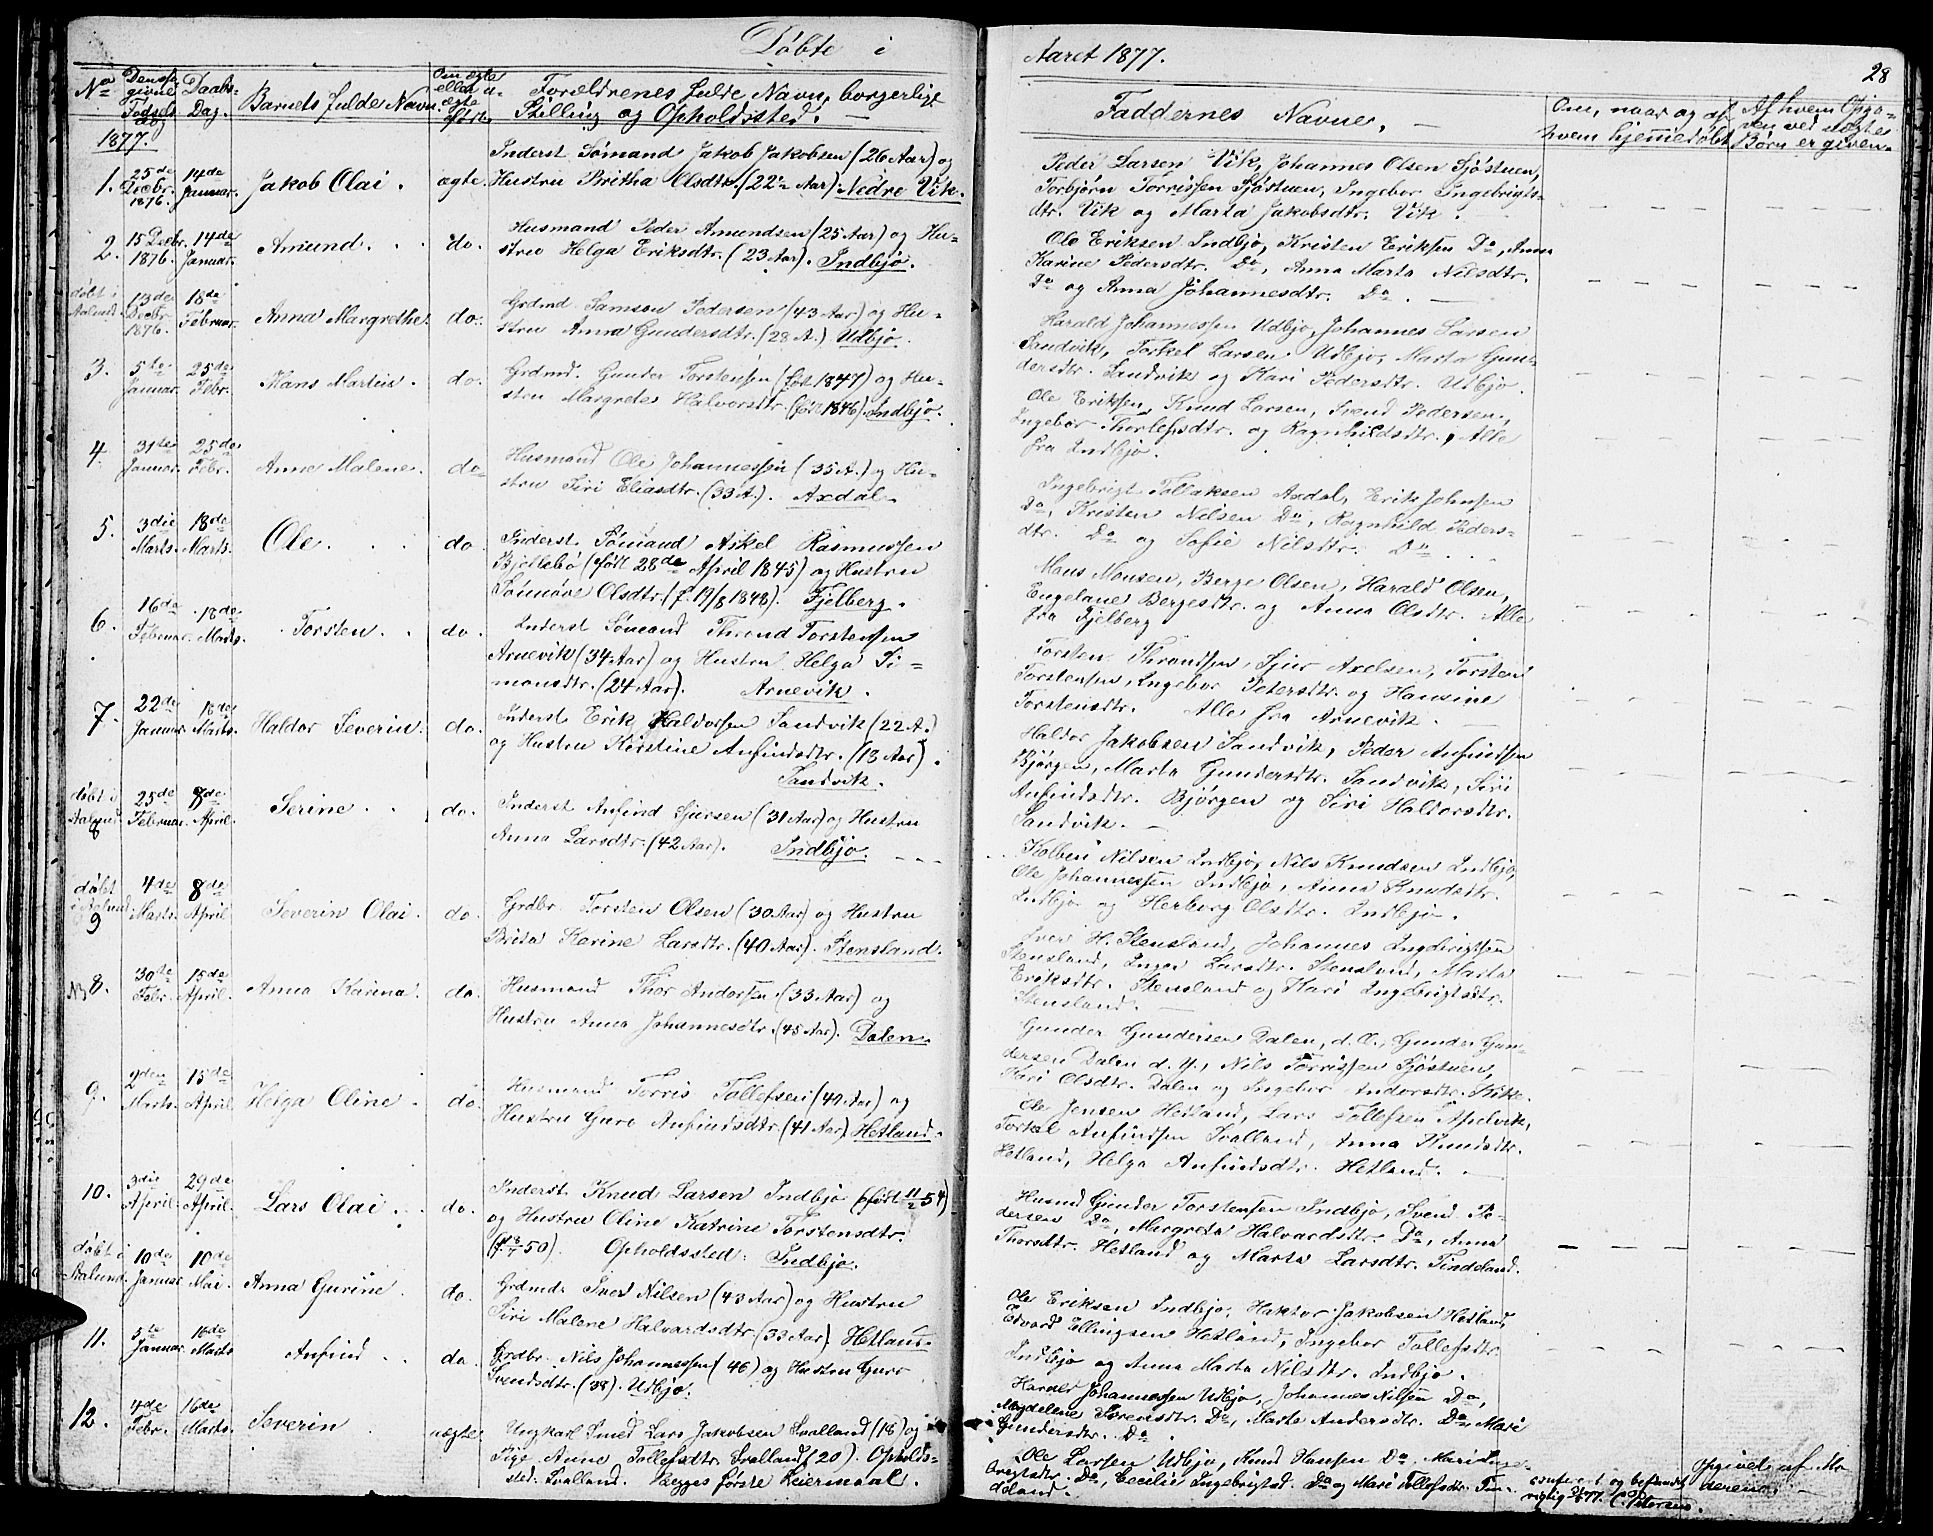 Døbte i
Aaret 1877.
28
No
Dens opgivne Fødselsdag
Daabs-Dag.
Barnets fulde Navn.
Om ægte eller uægte født.
Forældrenes fulde Navn, borgerlige
Stilling og Opholdssted.
Faddernes Navne.
Om, naar og af
hvem hjemmedøbt
Af hvem Opga-
ven ved uægte
Børn er given.
1877.
1. 25de Decbr. 1876. 14de Januar. Jakob Olai. ægte.
Inderst Sømand Jakob Jakobsen (26 Aar) og
Hustru Britha Olsdtr. (22 Aar) Nedre Vik.
Peder Larsen Vik, Johannes Olsen Sjöstuen,
Torbjørn Torrissen Sjöstuen, Ingebor Ingebrigts-
dtr. Vik og Marta Jakobsdtr. Vik.
2. 15 Decbr. 1876. 14de Januar. Amund. do.
Husmand Peder Amundsen (25 Aar) og Hu-
stru Helga Eriksdtr. (23 Aar). Indbjo.
Ole Eriksen Indbjo, Kristen Eriksen Do, Anna
Karine Pedersdtr. Do, Anna Marta Nilsdtr.
Do og Anna Johannesdtr. Do.
døbt i Aalund 13de Decbr. 1876. 18de Februar. Anna Margrethe. do.
Grdmd. Samson Pedersen (43 Aar) og Hu-
stru Anna Gundersdtr. (28 A.) Udbjo.
Harald Johannessen Udbjo, Johannes Larsen
Sandvik, Torkel Larsen Udbjo, Marta Gun-
dersdtr. Sandvik og Kari Pedersdtr. Udbjo.
3. 5te Januar. 25de Febr. Hans Martin. do.
Grdmd. Gunder Torstensen (født 1847) og Hu-
stru Margrete Halvorsdtr. (født 1846) Indbjo.
Ole Eriksen, Knud Larsen, Svend Pedersen,
Ingebor Thorlefsdtr. og Ragnhildsdtr., Alle
fra Indbjo.
4. 31te Januar. 25de Febr. Anne Malene. do.
Husmand Ole Johannessen (35 A.) og Hu-
stru Siri Eliasdtr. (33 A.). Axdal.
Ingebrigt Tollaksen Axdal, Erik Johnsen
Do, Kristen Nilsen Do, Ragnhild Peders-
dtr. Do og Sofie Nilsdtr. Do.
5. 3die Marts. 18de Marts. Ole. do.
Inderst Sømand Askel Rasmussen
Bjellebö (født 28de April 1845) og Hustru
Sönnöve Olsdtr. (f. 19/8 1848). Fjelberg.
Mons Monsen, Berge Olsen, Harald Olsen,
Engelane Bergesdtr. og Anna Olsdtr. Alle
fra Fjelberg.
6. 16de Februar. 18de Marts. Torsten. do.
Inderst Sömand Thrond Torstensen
Arnevik (34 Aar) og Hustru Helga Si-
monsdtr. (24 Aar). Arnevik.
Torsten Throndsen, Sjur Axelsen, Torsten
Torstensen, Ingebor Petersdtr. og Hansine
Torstensdtr. Alle fra Arnevik.
7. 22de Januar. 18de Marts. Haldor Severin. do.
Inderst Erik Haldorsen Sandvik (22 A.)
og Hustru Kirstine Anfindsdtr. (18 Aar).
Sandvik.
Haldor Jakobsen Sandvik, Peder Anfindsen
Bjørgen, Marta Gundersdtr. Sandvik, Siri
Anfindsdtr. Bjørgen og Siri Haldorsdtr.
Sandvik.
døbt i Aalund 8 25de Februar. 8de April. Serine. do.
Inderst Anfind Sjursen (31 Aar) og Hustru
Anna Larsdtr. (42 Aar). Indbjo.
Kolben Nilsen Indbjo, Nils Knudsen Indbjo,
Ole Johannessen Indbjo, Anna Knudsdtr.
Indbjo og Herborg Olsdtr. Indbjo.
døbt i Aalund 9 4de Marts. 8de April. Severin Olai. do.
Grdbr. Torsten Olsen (30 Aar) og Hustru
Brita Karine Larsdtr. (40 Aar). Stensland.
Iver H. Stensland, Johannes Ingebrigtsen
Stensland, Inger Larsdtr. Stensland, Marta
Eriksdtr. Stensland og Kari Ingebrigtsdtr.
Stensland.
NB 8. 30te Febr. 15de April. Anna Karina. do.
Husmand Thor Andersen (33 Aar) og
Hustru Anna Johannesdtr. (45 Aar). Dalen.
Gunder Gundersen Dalen, d. Æ., Gunder Gun-
dersen Dalen d. Y., Nils Torrissen Sjöstuen,
Kari Olsdtr. Dalen og Ingebor Andersdtr. Vike.
9. 2den Marts. 15de April. Helga Oline. do.
Husmand Torris Tollefsen (49 Aar) og
Hustru Guro Anfindsdtr. (41 Aar) Hetland.
Ole Jensen Hetland, Lars Tollefsen Apelvik,
Torkel Anfindsen Svalland, Anna Knudsdtr.
Hetland, Helga Anfindsdtr. Hetland.
10. 3die April. 29de April. Lars Olai. do.
Inderst Knud Larsen Indbjo (født 11/2 54)
og Hustru Oline Katrine Torstensdtr.
(f. 18/7 50). Opholdssted: Indbjo.
Husmd Gunder Torstensen Indbjo, Svend Pe-
dersen Do, Margreta Halvardsdtr. Do, Anna
Thorsdtr. Hetland og Marta Larsdtr. Tindeland.
døbt i Aalund. 10de Januar 10de Mai. Anna Gurine. do.
Grdmd. Iver Nilsen (43 Aar) og Hustru
Siri Malene Halvardsdtr. (33 Aar). Hetland.
Ole Eriksen Indbjo, Haktor Jakobsen Hetland,
Edvard Ellingsen Hetland, Ingebor Tollefsdtr.
Indbjo og Anna Marta Nilsdtr. Indbjo.
11. 5te Januar 16de Marts Anfind. do.
Grdbr. Nils Johannessen (46) og Hustru Guro
Svendsdtr. (38). Udbjo.
Harald Johannessen Udbjo, Johannes Nilsen Do,
Magdelene Sorensdtr. Do, Marta Andersdtr. Do, Mari
Gundersdtr. Do.
12. 4de Febr. 16de Marts. Severin uægte.
Ungkarl Smed Lars Jakobsen Svalland (18) og
Pige Anne Tollefsdtr. Svalland (20). Opholds-
sted: Svalland. Begges første Leiermaal.
Ole Larsen Udbjo, Knud Hansen Do, Mari Inge-
brigtsdtr. Do, Cecilie Ingebrigtsd. Do og Mari Tollefsdtr. Tin-
deland.
Opgivet af Mo-
deren.
conferert og befundet
rigtig 77. C. Petersen.